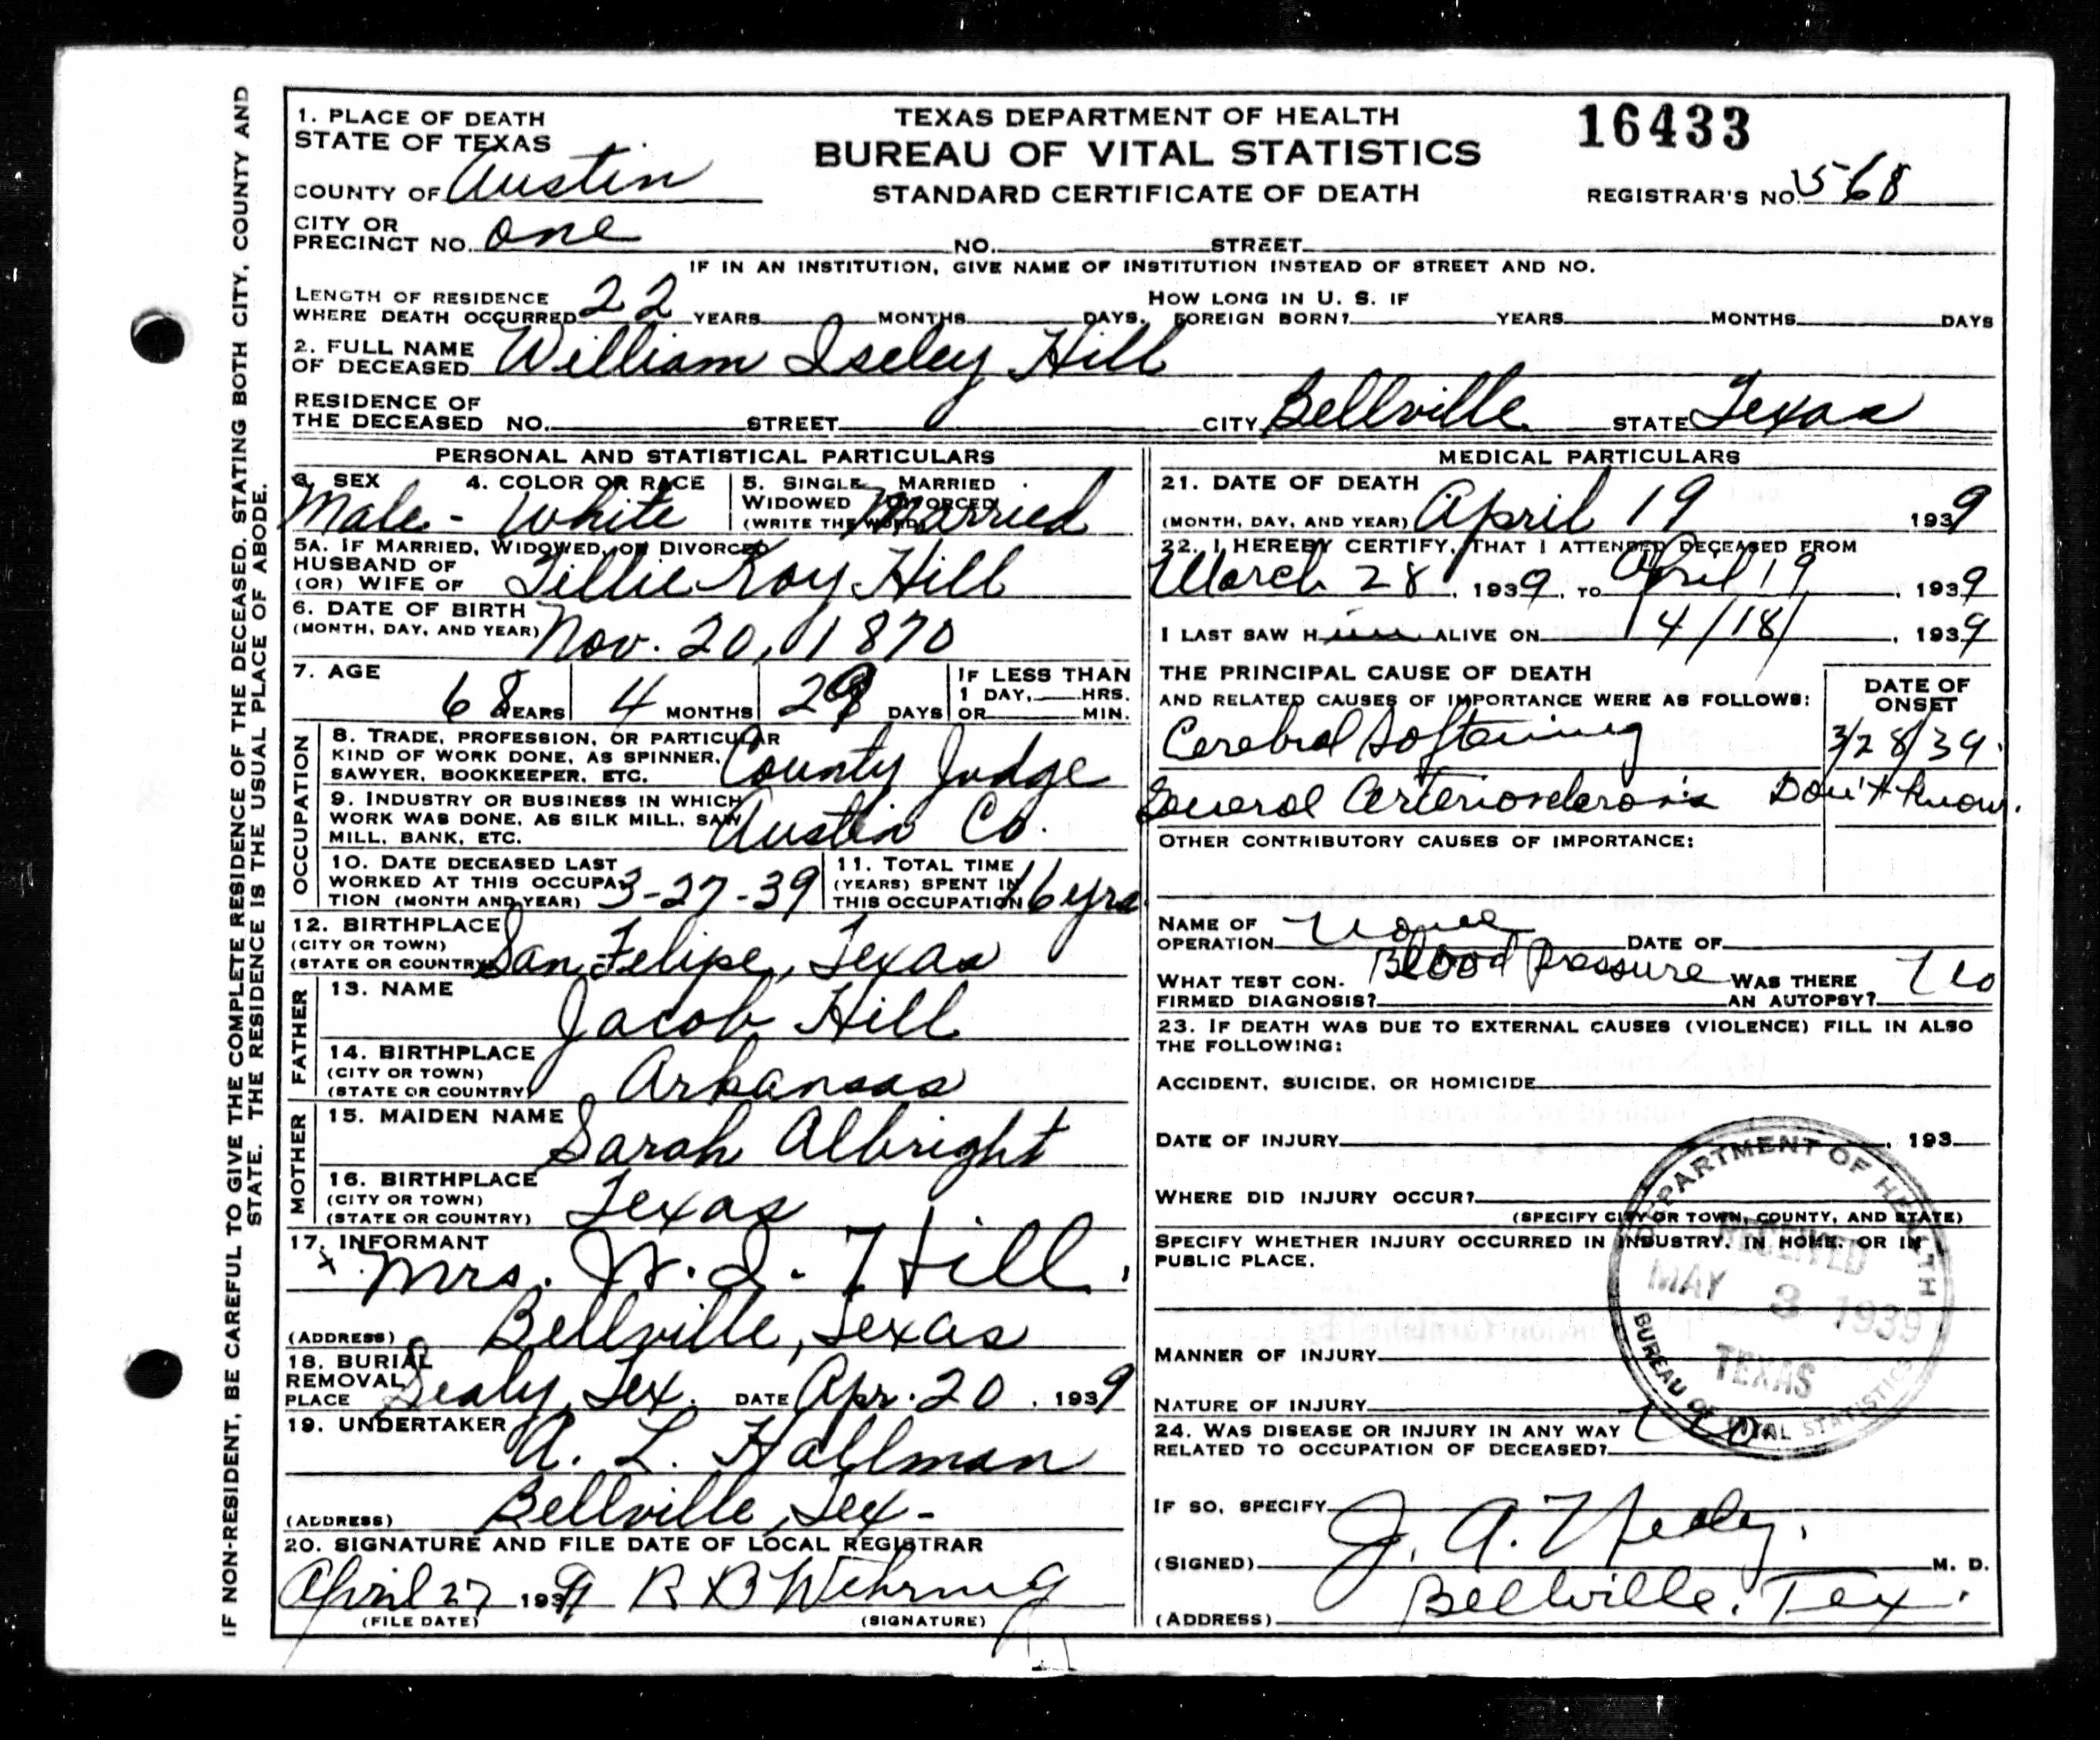 IF NON-RESIDENT, BE CAREFUL TO GIVE THE COMPLETE RESIDENCE OF THE DECEASED, STATING BOTH CITY, COUNTY AND
STATE. THE RESIDENCE IS THE USUAL PLACE OF ABODE.
1. PLACE OF DEATH
STATE OF TEXAS
COUNTY OF Austin
CITY OR
PRECINCT NO. One NO. STREET
TEXAS DEPARTMENT OF HEALTH
BUREAU OF VITAL STATISTICS
STANDARD CERTIFICATE OF DEATH
16433
REGISTRAR'S NO. 568
IF IN AN INSTITUTION, GIVE NAME OF INSTITUTION INSTEAD OF STREET AND NO.
LENGTH OF RESIDENCE
WHERE DEATH OCCURRED 22 YEARS MONTHS DAYS.
HOW LONG IN U. S. IF
FOREIGN BORN? YEARS MONTHS DAYS
2. FULL NAME
OF DECEASED William Iseley Hill
RESIDENCE OF
THE DECEASED NO. STREET CITY Bellville STATE Texas
PERSONAL AND STATISTICAL PARTICULARS
3. SEX 4. COLOR OR RACE
Male - White
5. SINGLE MARRIED
WIDOWED DIVORCED
(WRITE THE WORD) Married
5A. IF MARRIED, WIDOWED, OR DIVORCED
HUSBAND OF
(OR) WIFE OF Tillie Koy Hill
6. DATE OF BIRTH
(MONTH, DAY, AND YEAR) Nov. 20, 1870
7. AGE
68 YEARS 4 MONTHS 29 DAYS
IF LESS THAN
1 DAY, HRS.
OR MIN.
OCCUPATION
8. TRADE, PROFESSION, OR PARTICULAR
KIND OF WORK DONE, AS SPINNER,
SAWYER, BOOKKEEPER, ETC. County Judge
9. INDUSTRY OR BUSINESS IN WHICH
WORK WAS DONE, AS SILK MILL, SAW
MILL, BANK, ETC. Austin Co.
10. DATE DECEASED LAST
WORKED AT THIS OCCUPA-
TION (MONTH AND YEAR) 3-27-39
11. TOTAL TIME
(YEARS) SPENT IN
THIS OCCUPATION 16 yrs
12. BIRTHPLACE
(CITY OR TOWN)
(STATE OR COUNTRY) San Felipe, Texas
FATHER
13. NAME
Jacob Hill
14. BIRTHPLACE
(CITY OR TOWN)
(STATE OR COUNTRY) Arkansas
MOTHER
15. MAIDEN NAME
Sarah Albright
16. BIRTHPLACE
(CITY OR TOWN)
(STATE OR COUNTRY) Texas
17. INFORMANT
x Mrs. W. I. Hill
(ADDRESS) Bellville, Texas
18. BURIAL
REMOVAL
PLACE Sealy, Tex. DATE Apr. 20, 1939
19. UNDERTAKER
A. L. Hallman
(ADDRESS) Bellville, Tex-
20. SIGNATURE AND FILE DATE OF LOCAL REGISTRAR
April 27 1939 R B Wehring
(FILE DATE) (SIGNATURE)
MEDICAL PARTICULARS
21. DATE OF DEATH
(MONTH, DAY, AND YEAR) April 19 1939
22. I HEREBY CERTIFY, THAT I ATTENDED DECEASED FROM
March 28, 1939, TO April 19, 1939
I LAST SAW HIM ALIVE ON 4/18/, 1939
THE PRINCIPAL CAUSE OF DEATH
AND RELATED CAUSES OF IMPORTANCE WERE AS FOLLOWS:
DATE OF
ONSET
Cerebral Softening 3/28/39.
General Arteriosclerosis Don't know.
OTHER CONTRIBUTORY CAUSES OF IMPORTANCE:
NAME OF
OPERATION None DATE OF
WHAT TEST CON-
FIRMED DIAGNOSIS? Blood Pressure
WAS THERE
AN AUTOPSY? No
23. IF DEATH WAS DUE TO EXTERNAL CAUSES (VIOLENCE) FILL IN ALSO
THE FOLLOWING:
ACCIDENT, SUICIDE, OR HOMICIDE
DATE OF INJURY , 193
WHERE DID INJURY OCCUR?
(SPECIFY CITY OR TOWN, COUNTY, AND STATE)
SPECIFY WHETHER INJURY OCCURRED IN INDUSTRY, IN HOME, OR IN
PUBLIC PLACE.
MANNER OF INJURY
NATURE OF INJURY
DEPARTMENT OF HEALTH
RECEIVED
MAY 3 1939
TEXAS
BUREAU OF VITAL STATISTICS
24. WAS DISEASE OR INJURY IN ANY WAY
RELATED TO OCCUPATION OF DECEASED? No.
IF SO, SPECIFY
(SIGNED) J. A. Nealy. M. D.
(ADDRESS) Bellville, Tex.